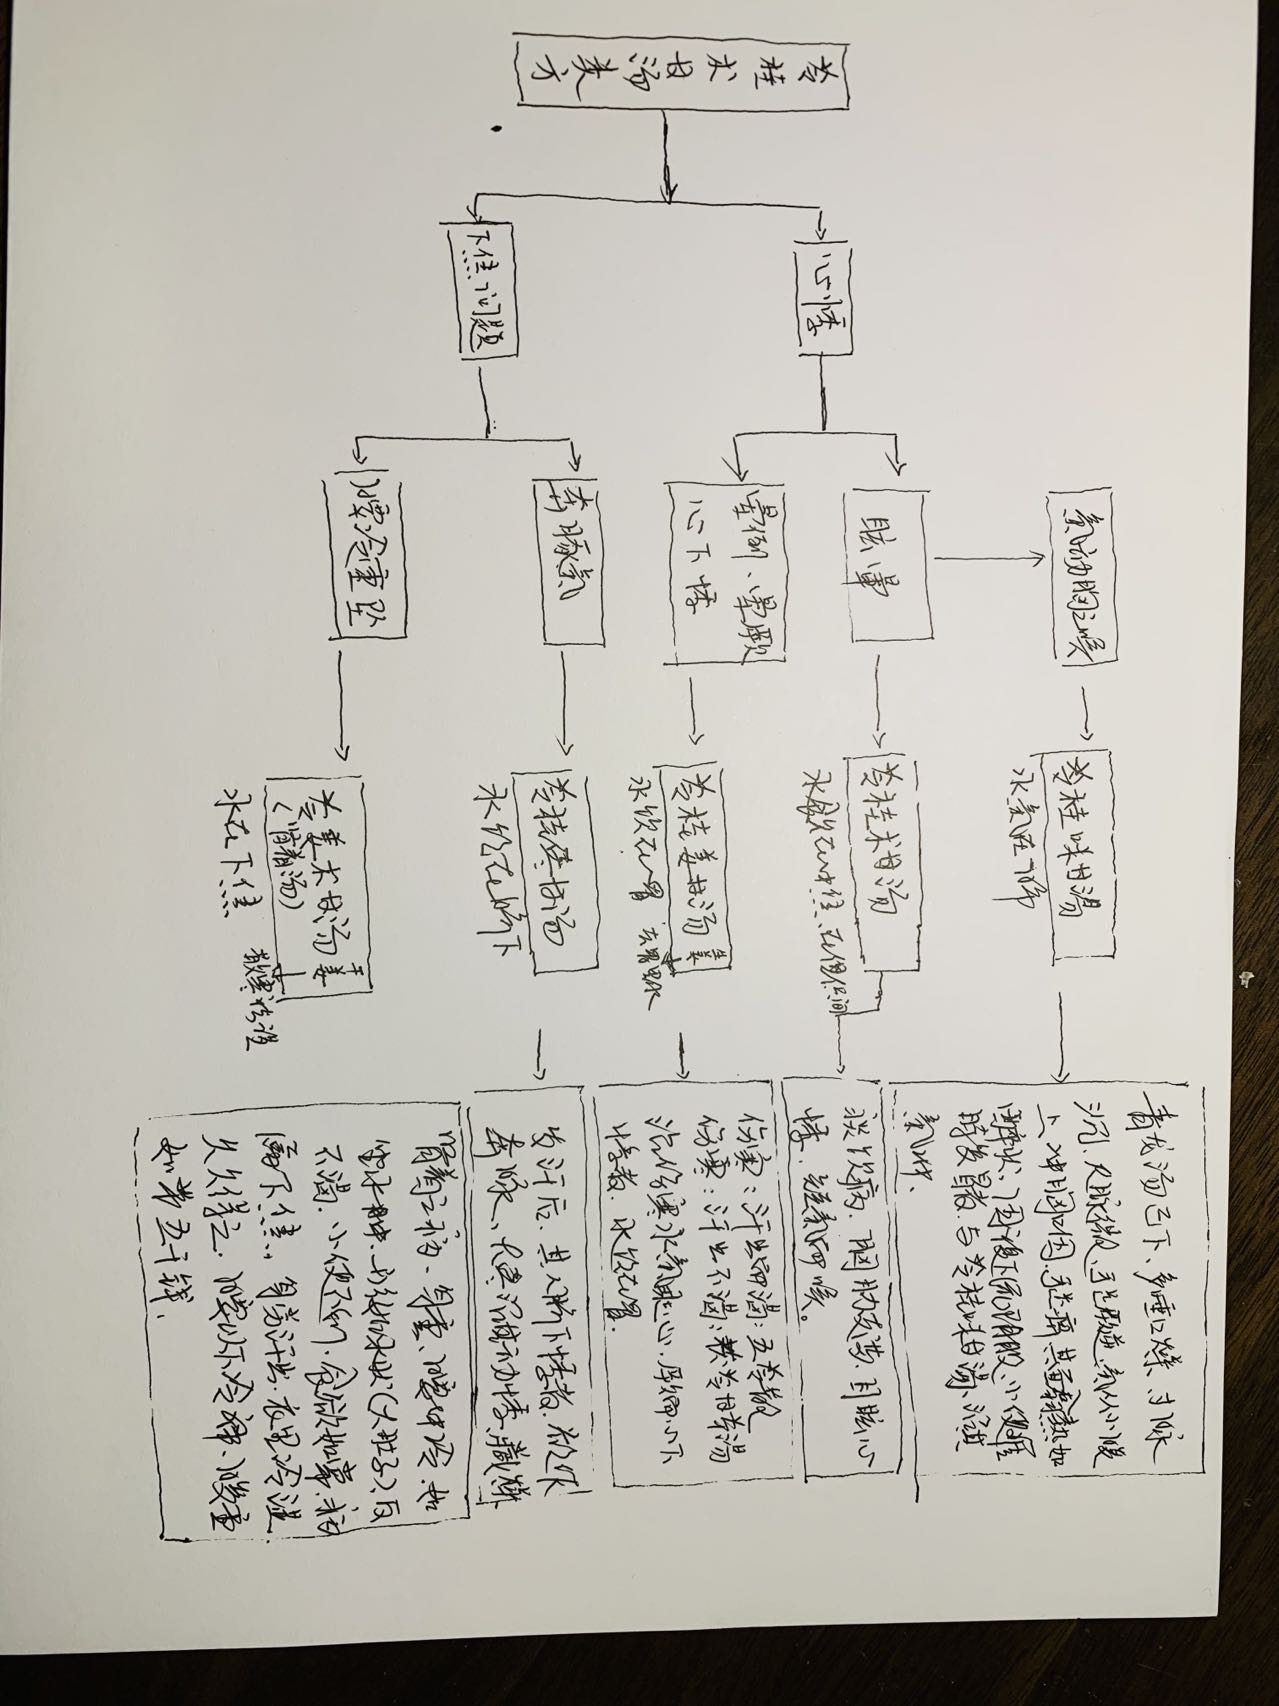 苓桂术甘汤类方
心悸
下焦问题
气动胸之喉
眩晕
晕倒、晕厥
心下悸
奔豚气
腰冷重坠
苓桂味甘汤
水气在下降
苓桂术甘汤
水饮在中焦
苓桂姜甘汤
生姜
水饮在胃
去胃水
苓桂枣甘汤
水饮在脐下
苓姜术甘汤
干姜
(肾着汤)
水在下焦
散寒
青龙汤已下、多唾口燥、寸脉
沉、尺脉微、手足厥逆、气从小腹
上冲胸咽、手足痹、其面翕热如
醉状、因复下流阴股、小便难
时复冒者、与苓桂味甘汤、治其
气冲、
痰饮病、胸胁支满、目眩心
悸、短气而咳。
伤寒:汗出而渴:五苓散
伤寒:汗出不渴:茯苓甘草汤
治伤寒水气凌心、厥而心下
悸者、水饮在胃。
发汗后、其人脐下悸者、欲作
奔豚、
肾着之病、身重、腰中冷、如
坐水中、形如水状(大肚子)、反
不渴、小便不利、食欲如常、病
属下焦、身劳汗出、衣里冷湿、
久久得之、腰以下冷痛、腹重
如带五千钱、